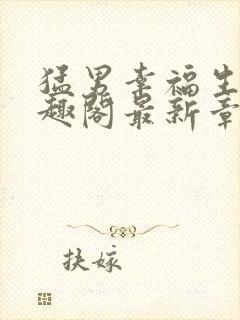 猛男幸福生
趣阁最新章
扶嫁